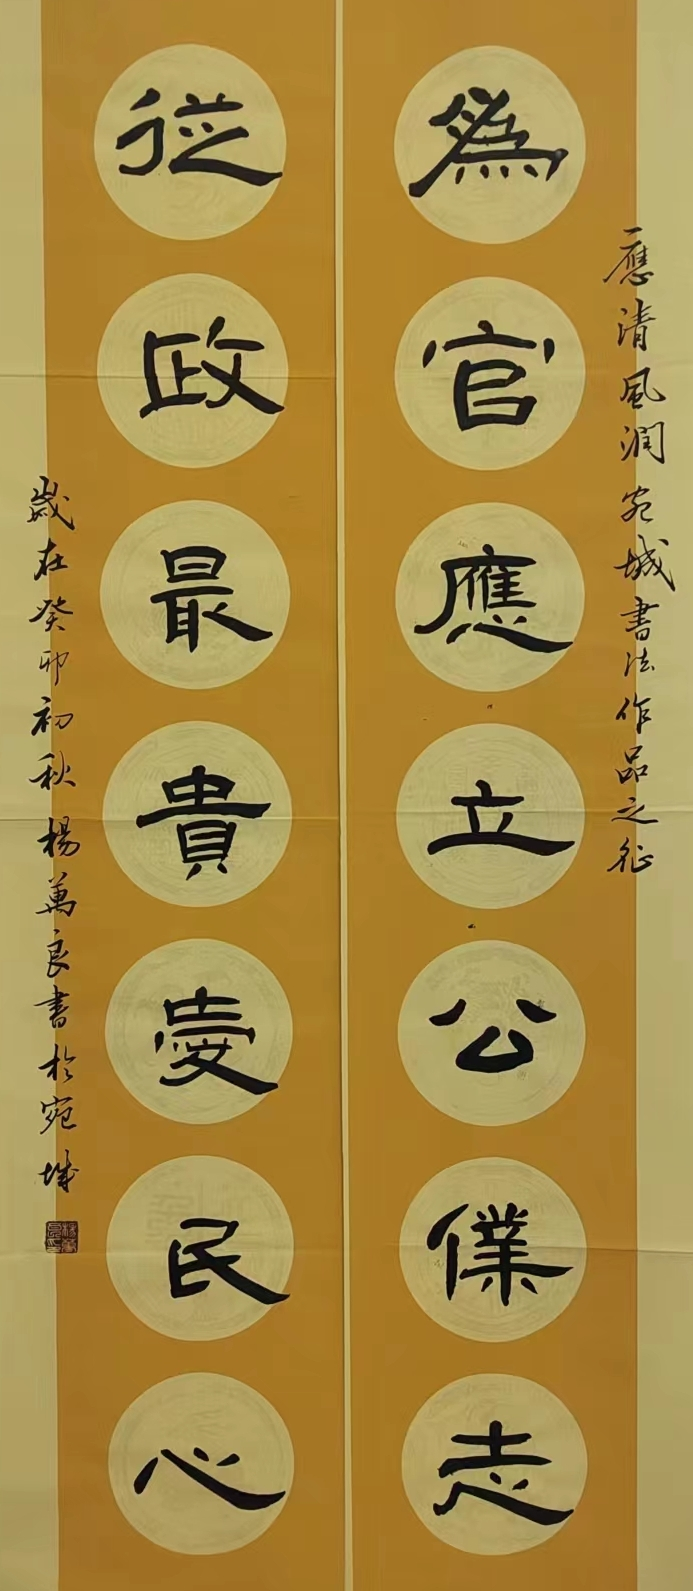 應清風潤宛城書法作品之征
為官應立公僕志
從政最貴愛民心
歲在癸卯初秋楊萬良書於宛城